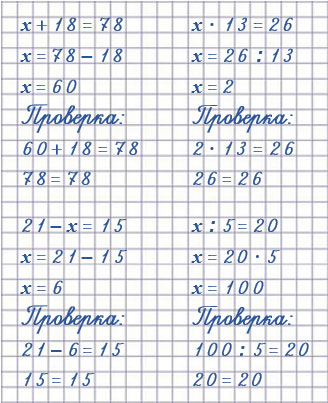 x + 18 = 78
x = 78 − 18
x = 60
Проверка:
60 + 18 = 78
78 = 78
x · 13 = 26
x = 26 : 13
x = 2
Проверка:
2 · 13 = 26
26 = 26
21 − x = 15
x = 21 − 15
x = 6
Проверка:
21 − 6 = 15
15 = 15
x : 5 = 20
x = 20 · 5
x = 100
Проверка:
100 : 5 = 20
20 = 20